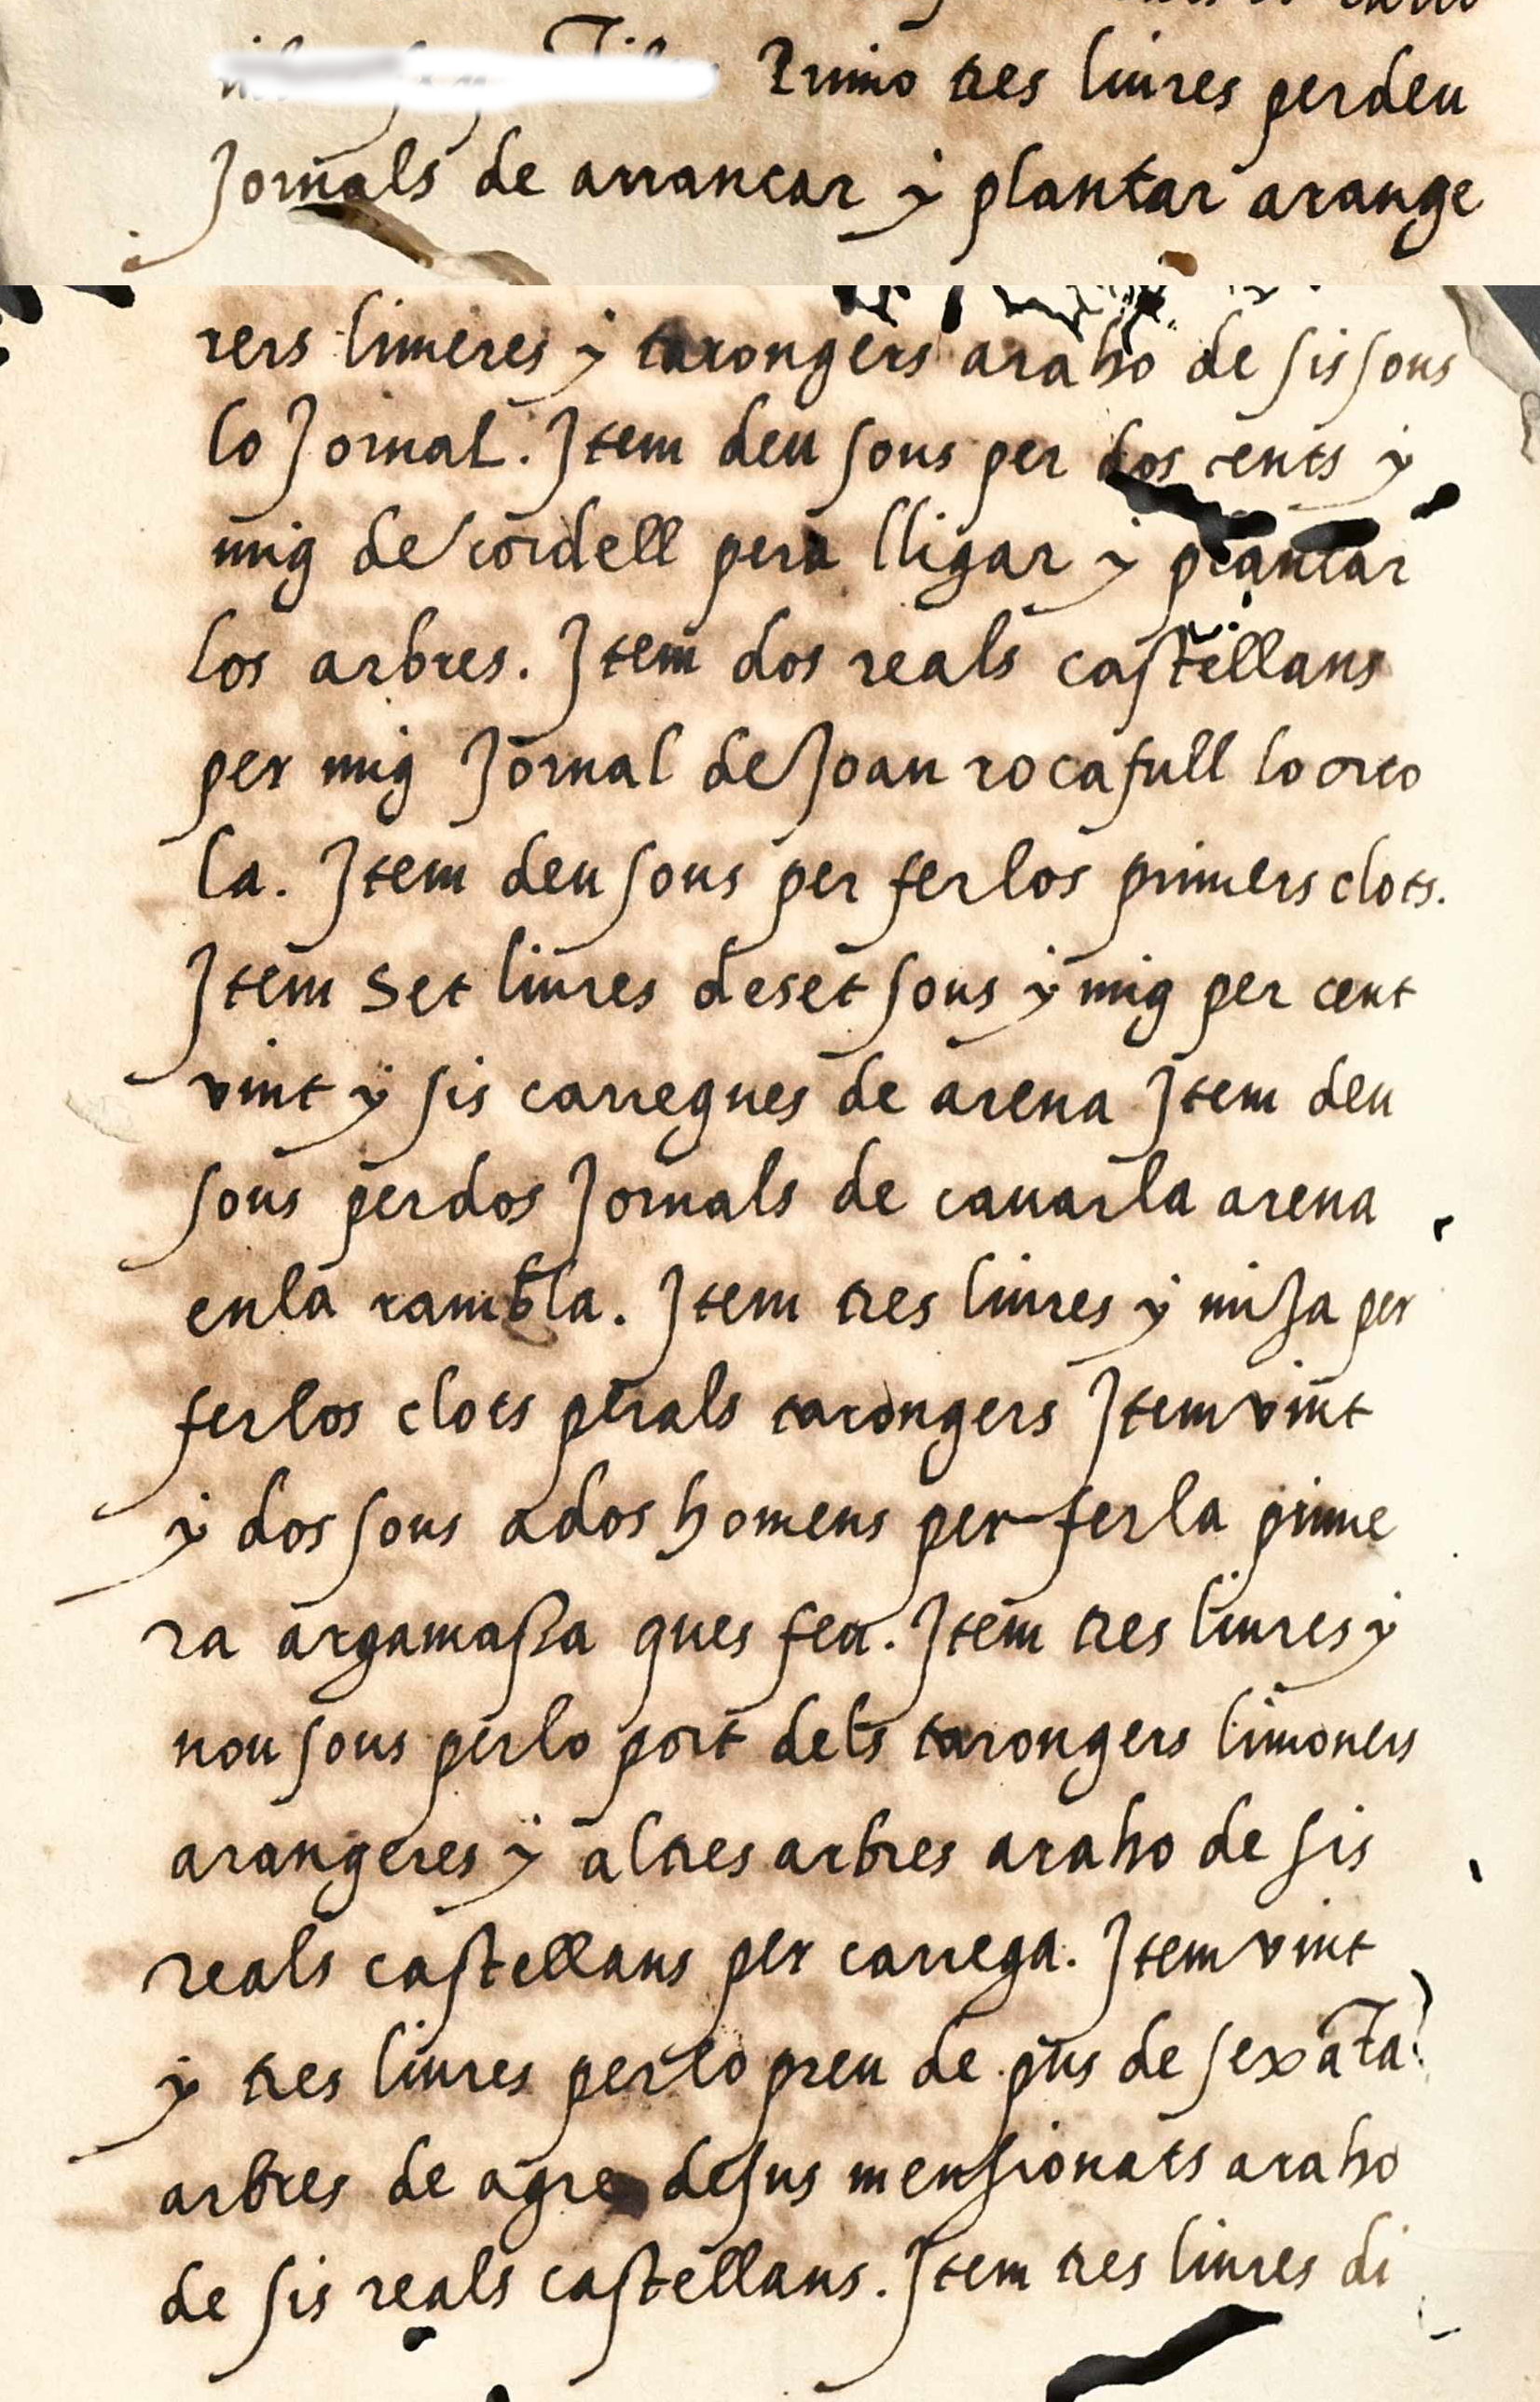 Primo tres liures perdeu
Jornals de arrancar y plantar arange
rers limeres y tarongers araho de sis sous
lo Jornal. Item deu sous per dos cents y
mig de cordell pera lligar y plantar
los arbres. Item dos reals castellans
per mig Jornal de Joan rocafull lo oreo
la. Item deu sous per ferlos primers clots.
Item set liures deset sous y mig per cent
vint y sis carregues de arena Item deu
sous perdos Jornals de cauarla arena
enla rambla. Item tres liures y miJa per
ferlos clots perals tarongers Item vint
y dos sous ados homens per ferla prime
ra argamassa ques feu. Item tres liures y
nou sous perlo port dels tarongers limoners
arangeres y altres arbres araho de sis
reals castellans per carrega. Item vint
y tres liures perlo preu de pus de sexata
arbres de agre desus mensionats araho
de sis reals castellans. Item tres liures di